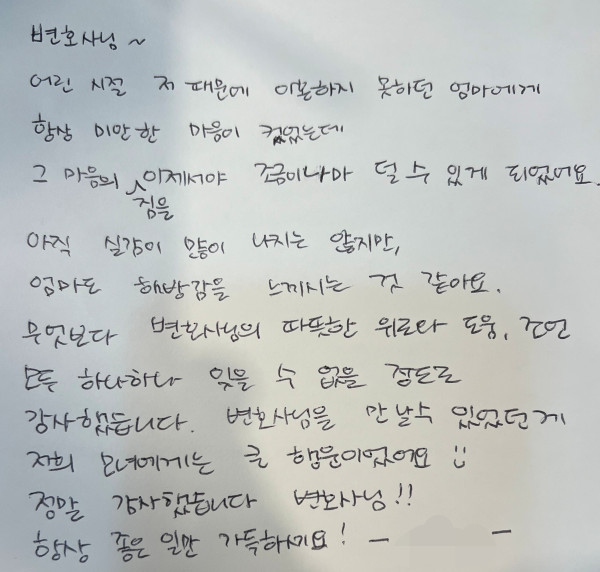 변호사님 ~
어린 시절 저 때문에 이혼하지 못하던 엄마에게
항상 미안한 마음이 컸었는데
그 마음의 짐을 이제서야 조금이나마 덜 수 있게 되었어요.
아직 실감이 많이 나지는 않지만,
엄마도 해방감을 느끼시는 것 같아요.
무엇보다 변호사님의 따뜻한 위로와 도움, 조언
모두 하나하나 잊을 수 없을 정도로
감사했습니다. 변호사님을 만날수 있었던게
저희 모녀에게는 큰 행운이었어요 :)
정말 감사했습니다 변호사님!!
항상 좋은 일만 가득하세요! — —